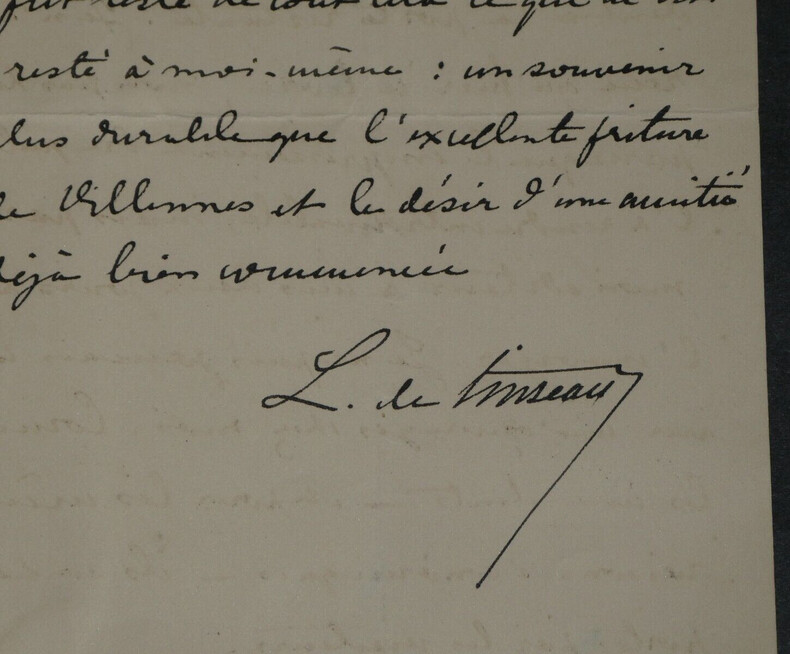 reste de tout cela ce que
resté à moi-même : un souvenir
lus durable que l'excellente friture
de Villennes et le désir d'une amitié
déjà bien commencée
L. de Tinseau